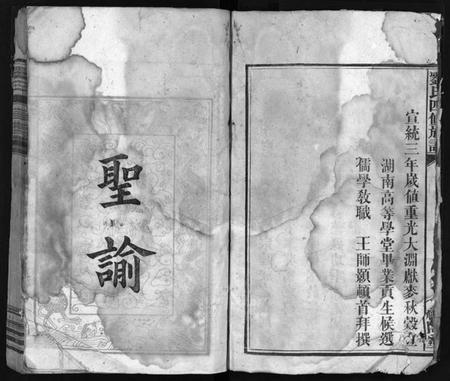 宣統三年歲值重光大淵獻麥秋穀旦
湖南高等學堂畢業貢生候選
儒學教職 王師顥頓首拜撰
聖諭